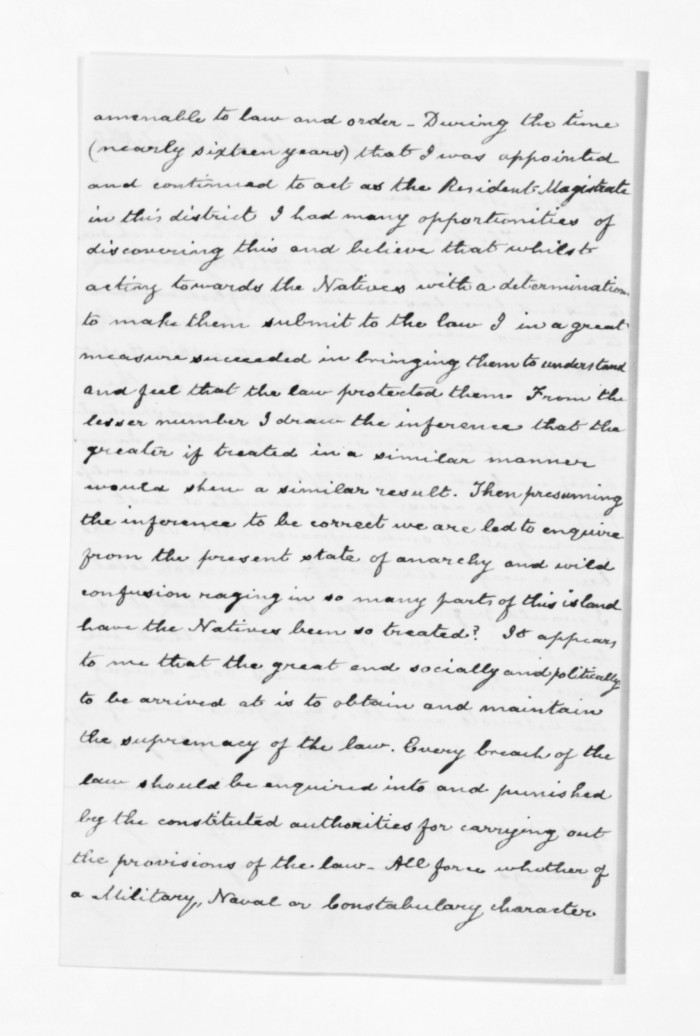 amenable to law and order - During the time
(nearly sixteen years) that I was appointed
and continued to act as the Resident Magistrate
in this district I had many opportunities of
discovering this and believe that whilst
acting towards the Natives with a determination
to make them submit to the law I in a great
measure succeeded in bringing them to understand
and feel that the law protected them. From the
lesser number I draw the inference that the
greater if treated in a similar manner
would shew a similar result. Then presuming
the inference to be correct we are led to enquire
from the present state of anarchy and wild
confusion raging in so many parts of this island
have the Natives been so treated? It appears
to me that the great end socially and politically
to be arrived at is to obtain and maintain
the supremacy of the law. Every breach of the
law should be enquired into and punished
by the constituted authorities for carrying out
the provisions of the law - All force whether of
a Military, Naval or Constabulary character